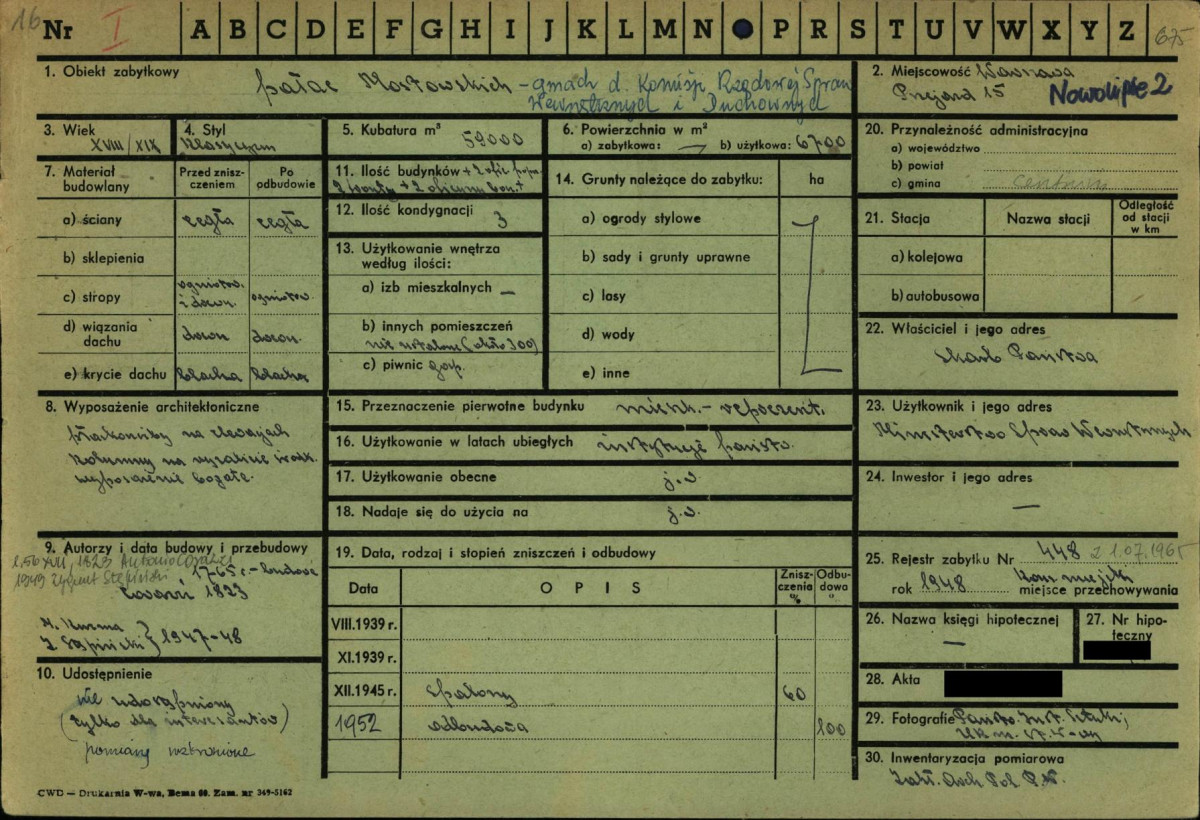 16
Nr I A B C D E F G H I J K L M N P R S T U V W X Y Z 675
1. Obiekt zabytkowy
pałac Mostowskich – gmach d. Komisji Rządowej Spraw
Wewnętrznych i Duchownych
2. Miejscowość Warszawa
Przejazd 15 Nowolipie 2
3. Wiek
XVIII/XIX
4. Styl
klasycyzm
5. Kubatura m³ 59000
6. Powierzchnia w m²
a) zabytkowa: — b) użytkowa: 6700
7. Materiał budowlany
Przed zniszczeniem
Po odbudowie
a) ściany cegła cegła
b) sklepienia
c) stropy ogniotrw. i drewn. ogniotrw.
d) wiązania dachu drewn. drewn.
e) krycie dachu blacha blacha
8. Wyposażenie architektoniczne
płaskorzeźby na elewacjach
kolumny na ryzalicie środk.
wyposażenie bogate.
9. Autorzy i data budowy i przebudowy
1823 Antonio Corazzi
1949 Zygmunt Stępiński
1765 r. – budowa
Corazzi 1823
Z. Stępiński } 1947-48
10. Udostępnienie
nie udostępniony
(tylko dla interesantów)
pomiary wzbronione
11. Ilość budynków + 2 ofic.
12. Ilość kondygnacji 3
13. Użytkowanie wnętrza
według ilości:
a) izb mieszkalnych —
b) innych pomieszczeń
nie ustalono (około 300)
c) piwnic gosp.
14. Grunty należące do zabytku: ha
a) ogrody stylowe
b) sady i grunty uprawne
c) lasy
d) wody
e) inne
15. Przeznaczenie pierwotne budynku mieszk. – reprezent.
16. Użytkowanie w latach ubiegłych instytucje państw.
17. Użytkowanie obecne j.w.
18. Nadaje się do użycia na j.w.
19. Data, rodzaj i stopień zniszczeń i odbudowy
Data O P I S Zniszczenia % Odbudowa %
VIII.1939 r.
XI.1939 r.
XII.1945 r. spalony 60
1952 odbudowa 100
20. Przynależność administracyjna
a) województwo
b) powiat
c) gmina
21. Stacja Nazwa stacji Odległość od stacji w km
a) kolejowa
b) autobusowa
22. Właściciel i jego adres
Skarb Państwa
23. Użytkownik i jego adres
Ministerstwo Spraw Wewnętrznych
24. Inwestor i jego adres
—
25. Rejestr zabytku Nr 448 z 1.07.1965
rok 1948 Kons. miejski miejsce przechowywania
26. Nazwa księgi hipotecznej
—
27. Nr hipoteczny
28. Akta
29. Fotografie Państw. Inst. Sztuki;
30. Inwentaryzacja pomiarowa
Zakł. Arch. Pol. P.W.
CWD — Drukarnia W-wa, Bema 60. Zam. nr 349-5162